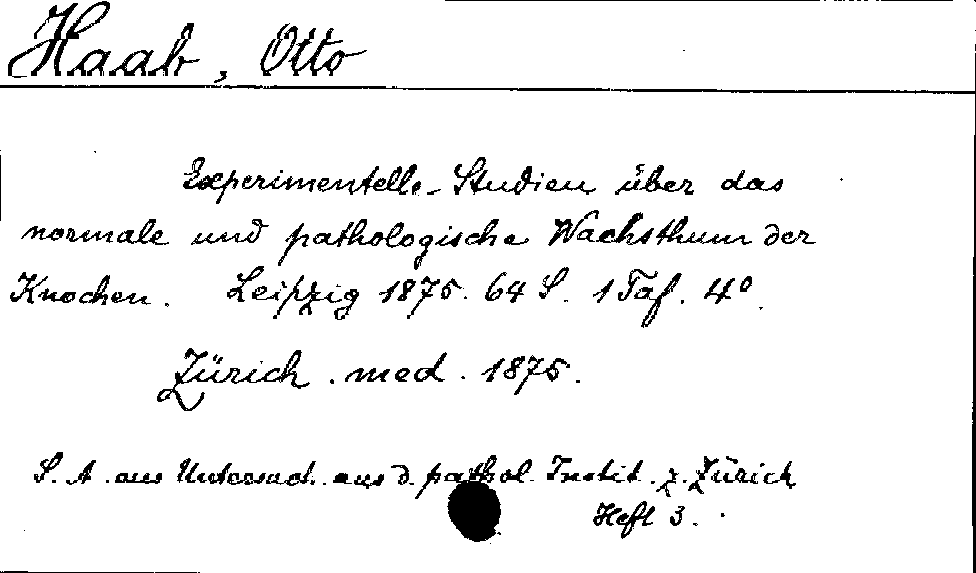 Haab, Otto
Experimentelle Studien über das
normale und pathologische Wachsthum der
Knochen. Leipzig 1875. 64 S. 1 Taf. 4°.
Zürich. med. 1875.
S. A. aus Untersuch. aus d. pathol. Instit. z. Zürich
Heft 3.